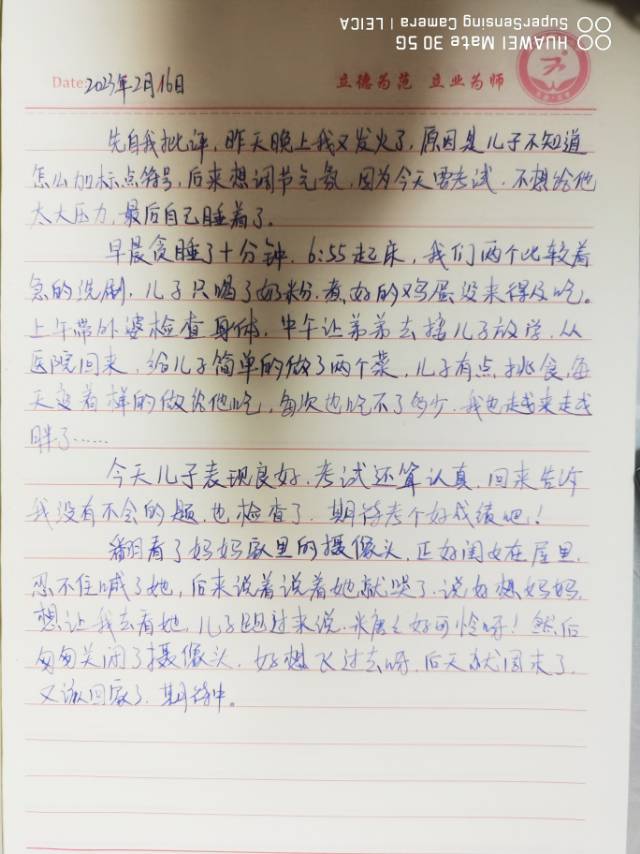 HUAWEI Mate 30 5G
SuperSensing Camera | LEICA
Date: 2023年2月16日
立德为范 立业为师
先自我批评，昨天晚上我又发火了，原因是儿子不知道
怎么加标点符号，后来想调节气氛，因为今天要考试，不想给他
太大压力，最后自己睡着了。
早晨贪睡了十分钟，6:55起床，我们两个比较着
急的洗刷，儿子只喝了奶粉，煮好的鸡蛋没来得及吃。
上午带外婆检查身体，中午让弟弟去接儿子放学，从
医院回来，给儿子简单的做了两个菜，儿子有点挑食，每
天变着样的做给他吃，每次也吃不了多少，我也越来越
胖了……
今天儿子表现良好，考试还算认真，回来告诉
我没有不会的题，也检查了，期待考个好成绩吧！
翻看了妈妈家里的摄像头，正好闺女在屋里，
忍不住喊了她，后来说着说着她就哭了，说好想妈妈，
想让我去看她，儿子跑过来说，米唐七好可怜呀！然后
匆匆关闭了摄像头，好想飞过去呀，后天就周末了，
又该回家了，期待中。